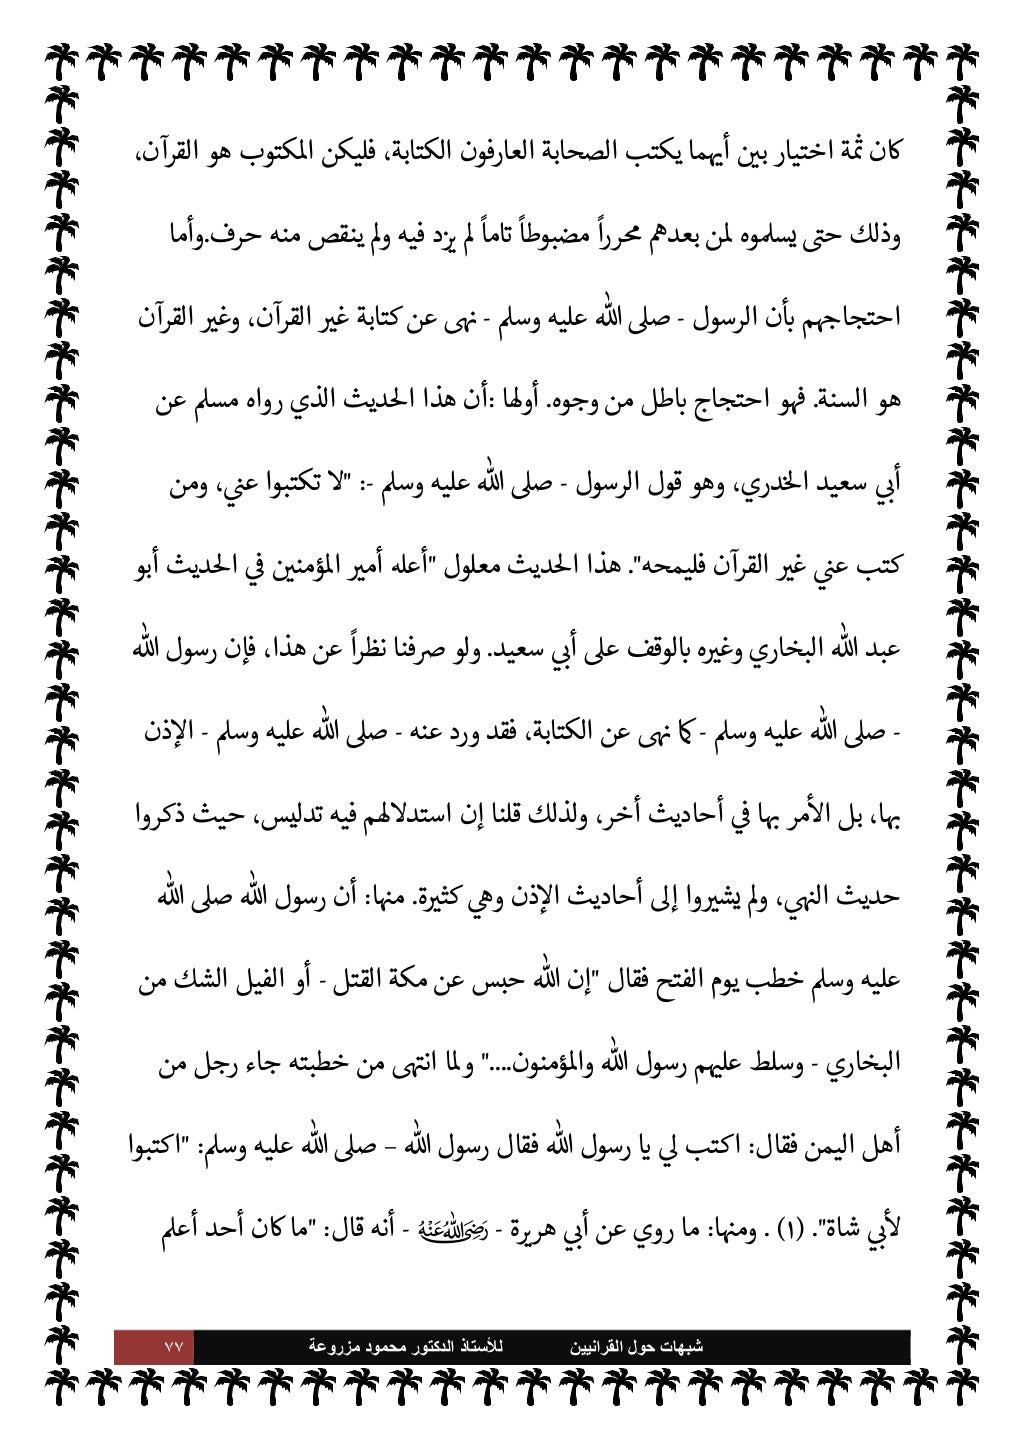 كان ثمة اختيار بين أيهما يكتب الصحابة العارفون الكتابة، فليكن المكتوب هو القرآن،
وذلك حتى يسلموه لمن بعدهم محرراً مضبوطاً تاماً لم يزد فيه ولم ينقص منه حرف.وأما
احتجاجهم بأن الرسول - صلى الله عليه وسلم - نهى عن كتابة غير القرآن، وغير القرآن
هو السنة. فهو احتجاج باطل من وجوه. أولها :أن هذا الحديث الذي رواه مسلم عن
أبي سعيد الخدري، وهو قول الرسول - صلى الله عليه وسلم -: "لا تكتبوا عني، ومن
كتب عني غير القرآن فليمحه". هذا الحديث معلول "أعله أمير المؤمنين في الحديث أبو
عبد الله البخاري وغيره بالوقف على أبي سعيد. ولو صرفنا نظراً عن هذا، فإن رسول الله
- صلى الله عليه وسلم -كما نهى عن الكتابة، فقد ورد عنه - صلى الله عليه وسلم - الإذن
بها، بل الأمر بها في أحاديث أخر، ولذلك قلنا إن استدلالهم فيه تدليس، حيث ذكروا
حديث النهي، ولم يشيروا إلى أحاديث الإذن وهي كثيرة. منها: أن رسول الله صلى الله
عليه وسلم خطب يوم الفتح فقال "إن الله حبس عن مكة القتل - أو الفيل الشك من
البخاري - وسلط عليهم رسول الله والمؤمنون...." ولما انتهى من خطبته جاء رجل من
أهل اليمن فقال: اكتب لي يا رسول الله فقال رسول الله – صلى الله عليه وسلم: "اكتبوا
لأبي شاة". (١) . ومنها: ما روي عن أبي هريرة - رَضِيَ اللَّهُ عَنْهُ - أنه قال: "ما كان أحد أعلم
شبهات حول القرانيين للأستاذ الدكتور محمود مزروعة ٧٧